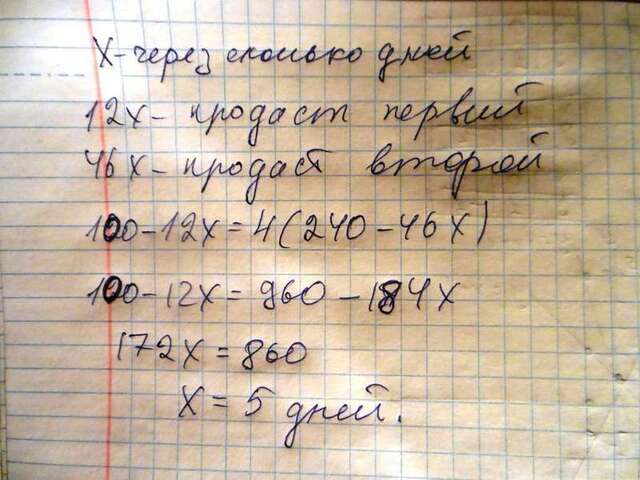 X-через сколько дней
12x- продаст первий
46x- продаст второй
100-12x=4(240-46x)
100-12x=960-184x
172x=860
x=5 дней.